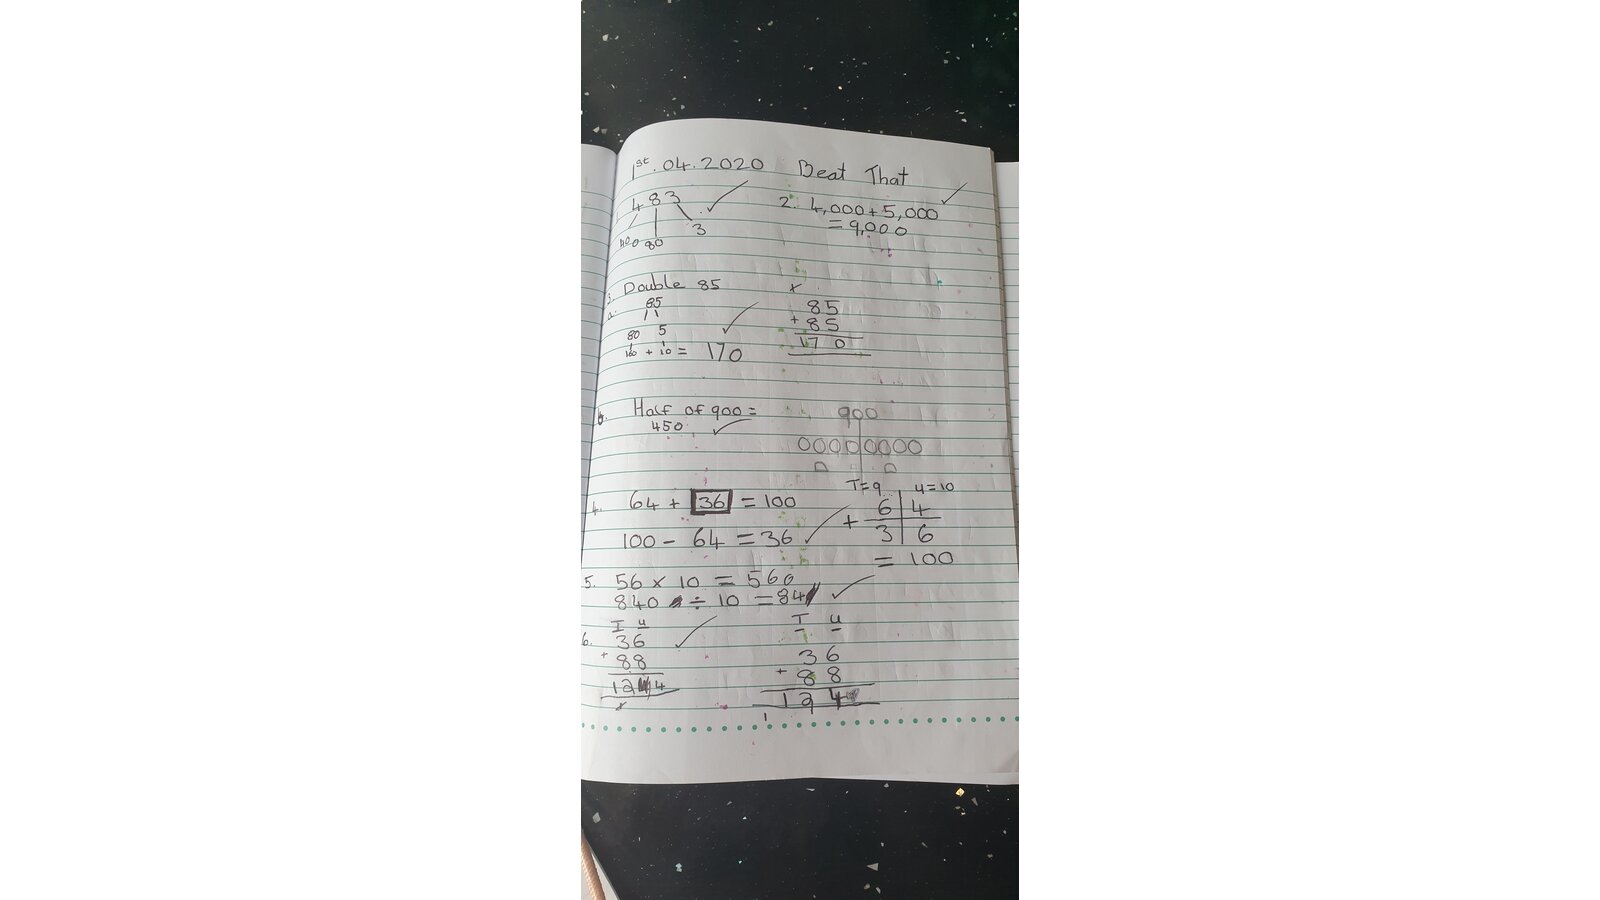 1st.04.2020 Beat That
483
400 80 3
2. 4,000+5,000
=9,000
3. Double 85
a. 85
80 5
160 + 10 = 170
x
85
+ 85
170
b. Half of 900 =
450
900
00000000
4. 64 + 36 = 100
100 - 64 = 36
T=9 u=10
6 4
+ 3 6
= 100
5. 56 x 10 = 560
840 ÷ 10 = 84
6. T u
36
+ 88
124
T u
36
+ 88
124
1